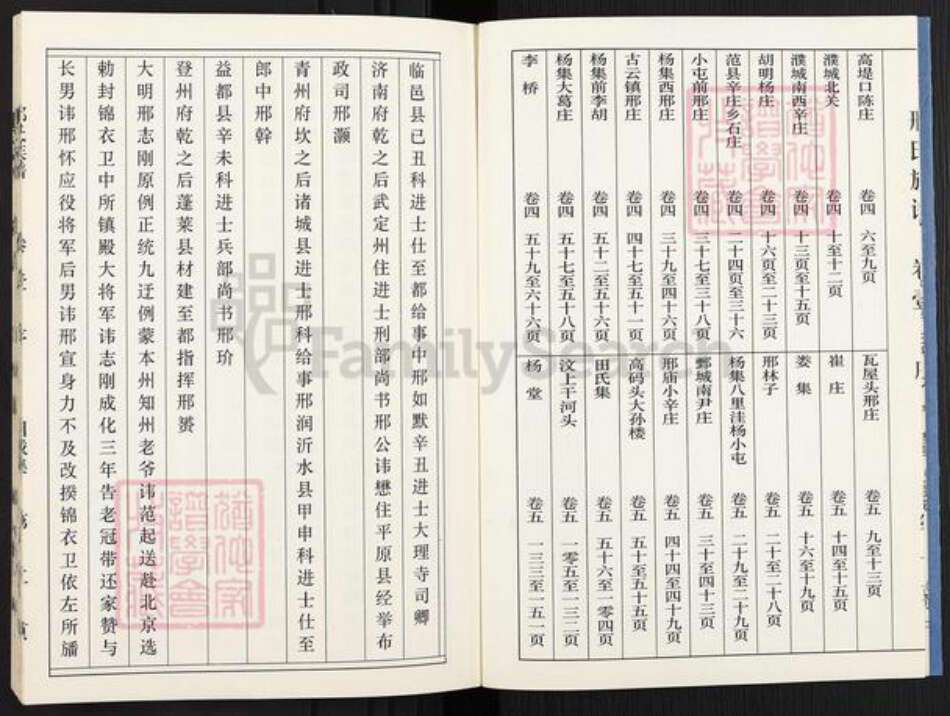 高堤口陈庄 卷四 六至九页
濮城北关 卷四 十至十二页
濮城南西辛庄 卷四 十三页至十五页
胡明杨庄 卷四 十六页至二十三页
范县辛庄乡石庄 卷四 二十四页至三十六
小屯前邢庄 卷四 三十七至三十八页
杨集西邢庄 卷四 三十九至四十六页
古云镇邢庄 卷四 四十七至五十一页
杨集前李胡 卷四 五十二至五十六页
杨集大葛庄 卷四 五十七至五十八页
李桥 卷四 五十九至六十六页
瓦屋头邢庄 卷五 九至十三页
崔庄 卷五 十四至十五页
娄集 卷五 十六至十九页
邢林子 卷五 二十至二十八页
杨集八里洼杨小屯 卷五 二十九至二十九页
鄄城南尹庄 卷五 三十至四十三页
邢庙小辛庄 卷五 四十四至四十九页
高码头大孙楼 卷五 五十至五十五页
田氏集 卷五 五十六至一零四页
汶上干河头 卷五 一零五至一三二页
杨堂 卷五 一三三至一五一页
临邑县已丑科进士仕至都给事中邢如默辛丑进士大理寺司卿
济南府乾之后武定州住进士刑部尚书邢公讳懋住平原县经举布
政司邢灏
青州府坎之后诸城县进士邢科给事邢润沂水县甲申科进士仕至
郎中邢幹
益都县辛未科进士兵部尚书邢玠
登州府乾之后蓬莱县材建至都指挥邢赟
大明邢志刚原例正统九迁例蒙本州知州老爷讳范起送赴北京选
勅封锦衣卫中所镇殿大将军讳志刚成化三年告老冠带还家赞与
长男讳邢怀应役将军后男讳邢宣身力不及改揆锦衣卫依左所旙
FamilySearch